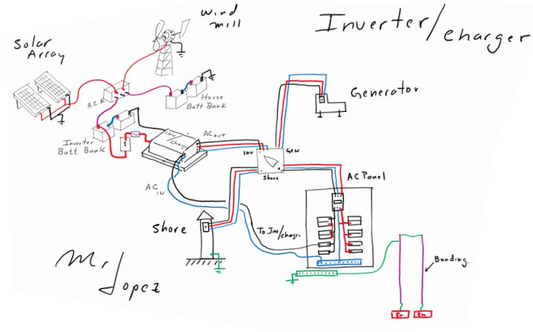 Inverter/charger
Wind
mill
Solar
Array
ACR
House
Batt Bank
Generator
Inverter
Batt Bank
Inv/
Charger
AC OUT
INV
GEN
Shore
AC
IN
AC Panel
Shore
To Inv/charger.
Bonding.
Mr Lopez